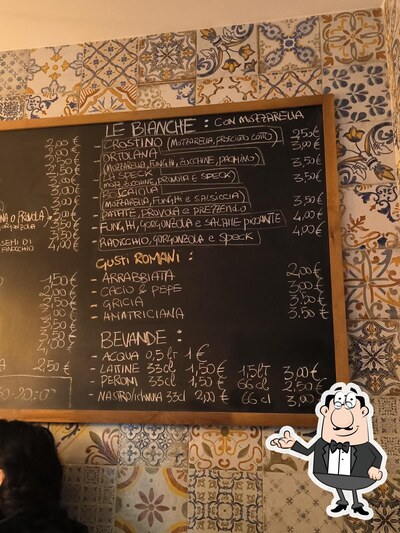 LE BIANCHE : CON MOZZARELLA
- CROSTINO (MOZZARELLA, PROSCIUTO COTTO) 2,50€
- ORTOLANA 3,00€
(MOZZARELLA, FUNGHI, ZUCCHINE, PACHINO) 3,50€
- LA SPECK
(MOZZ. ZUCCHINE, PROVOLA E SPECK) 3,50€
- BOSCAIOLA
(MOZZARELLA, FUNGHI E SALSICCIA) 3,50€
- PATATE, PROVOLA E PREZZEMOLO
- FUNGHI, GORGONZOLA E SALAME PICCANTE 4,00€
- RADICCHIO, GORGONZOLA E SPECK 4,00€
GUSTI ROMANI :
- ARRABBIATA 2,00€
- CACIO & PEPE 3,00€
- GRICIA 3,50€
- AMATRICIANA 3,50€
BEVANDE :
- ACQUA 0,5 lt 1€
- LATTINE 33cl 1,50€ 1,5lt 3,00€
- PERONI 33cl 1,50€ 66 cl 2,50€
- NASTRO/ICHNUSA 33cl 2,00€ 66 cl 3,00
2,00€
3,00€
3,50€
4,00€
SEMI DI
1,50€
2,50€